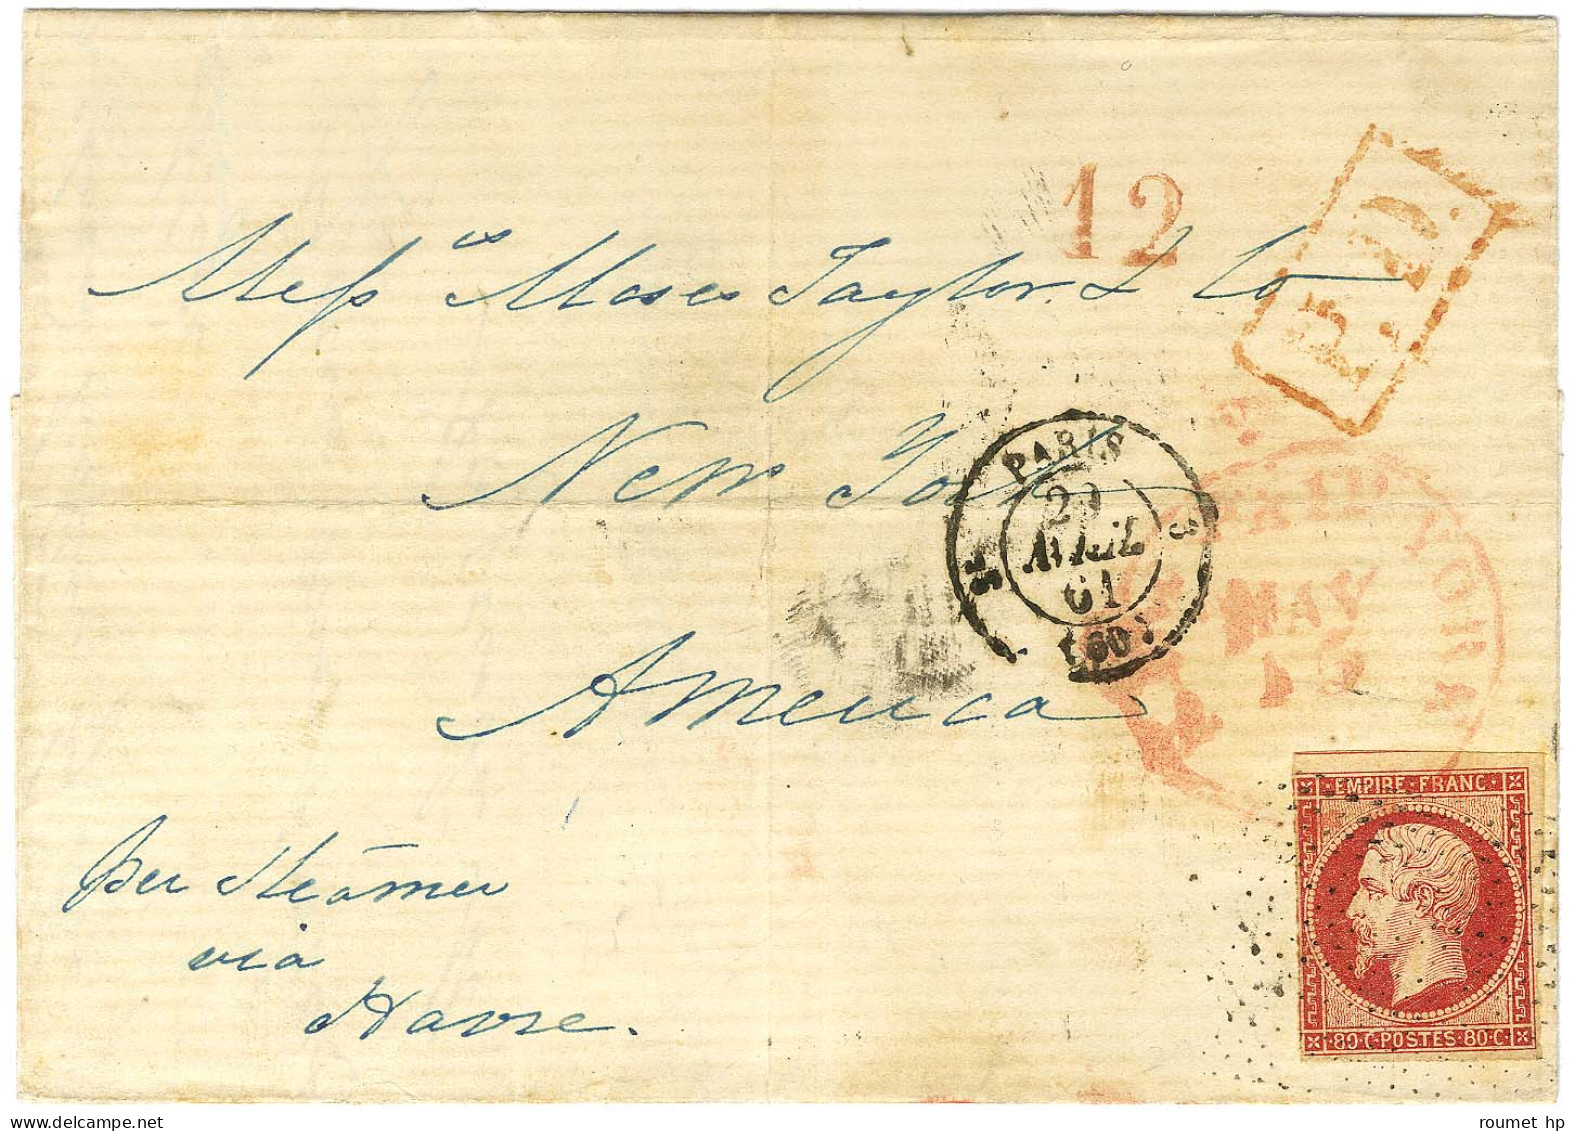 12
P.D.
Mess.rs Moses Taylor & Co
New York
America
per Steamer
via
Havre.
PARIS
29
AVRIL
61
(60)
3
YORK
PAID
MAY
EMPIRE · FRANC ·
· 80 · C · POSTES · 80 · C ·
roumet hp